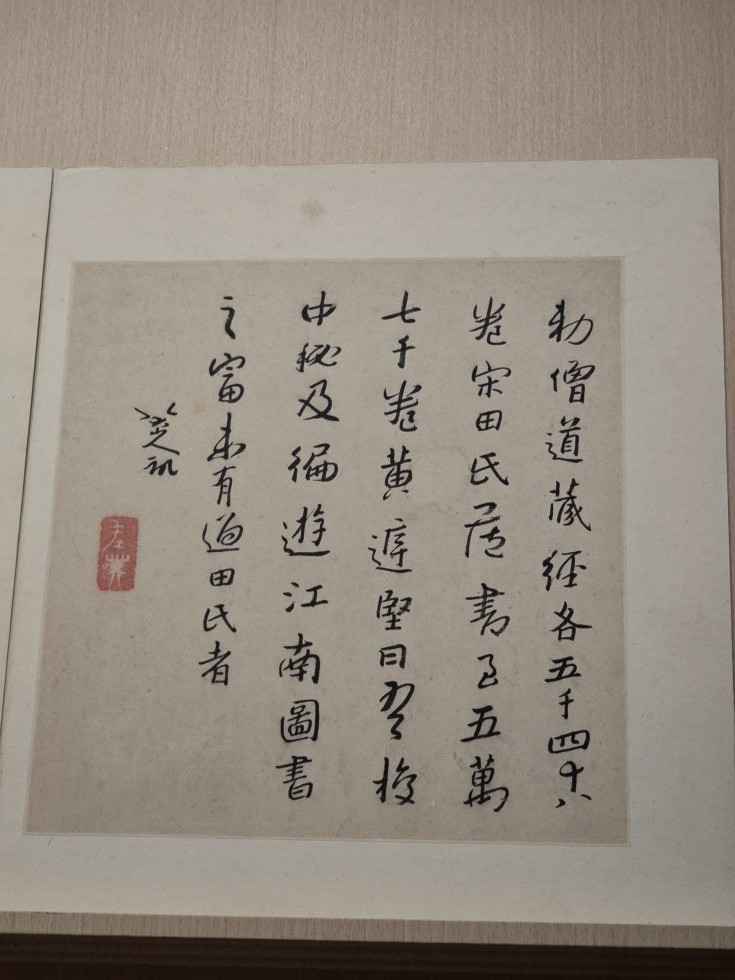 勅僧道藏經各五千四十八
卷宋田氏居書至五萬
七千卷黃庭堅曰吾校
中秘及徧遊江南圖書
之富未有過田氏者
八大山人